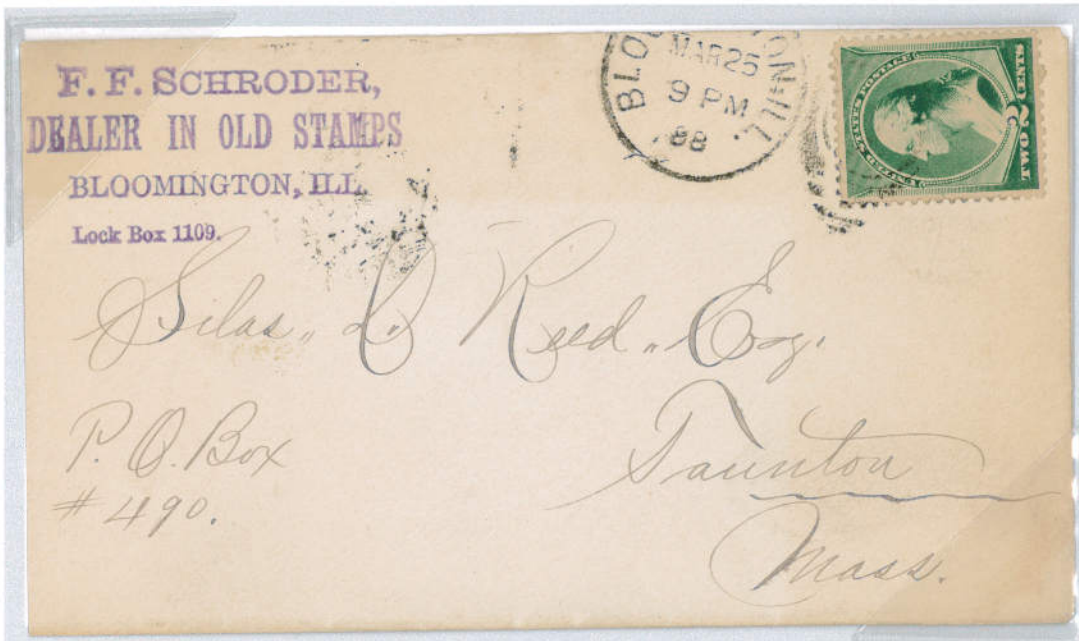 F. F. SCHRODER,
DEALER IN OLD STAMPS
BLOOMINGTON, ILL.
Lock Box 1109.
MAR 25
9 PM
88
ILL.
UNITED STATES POSTAGE
TWO 2 CENTS
Silas, D. Reed, Esq.
P. O. Box
# 490.
Taunton
Mass.